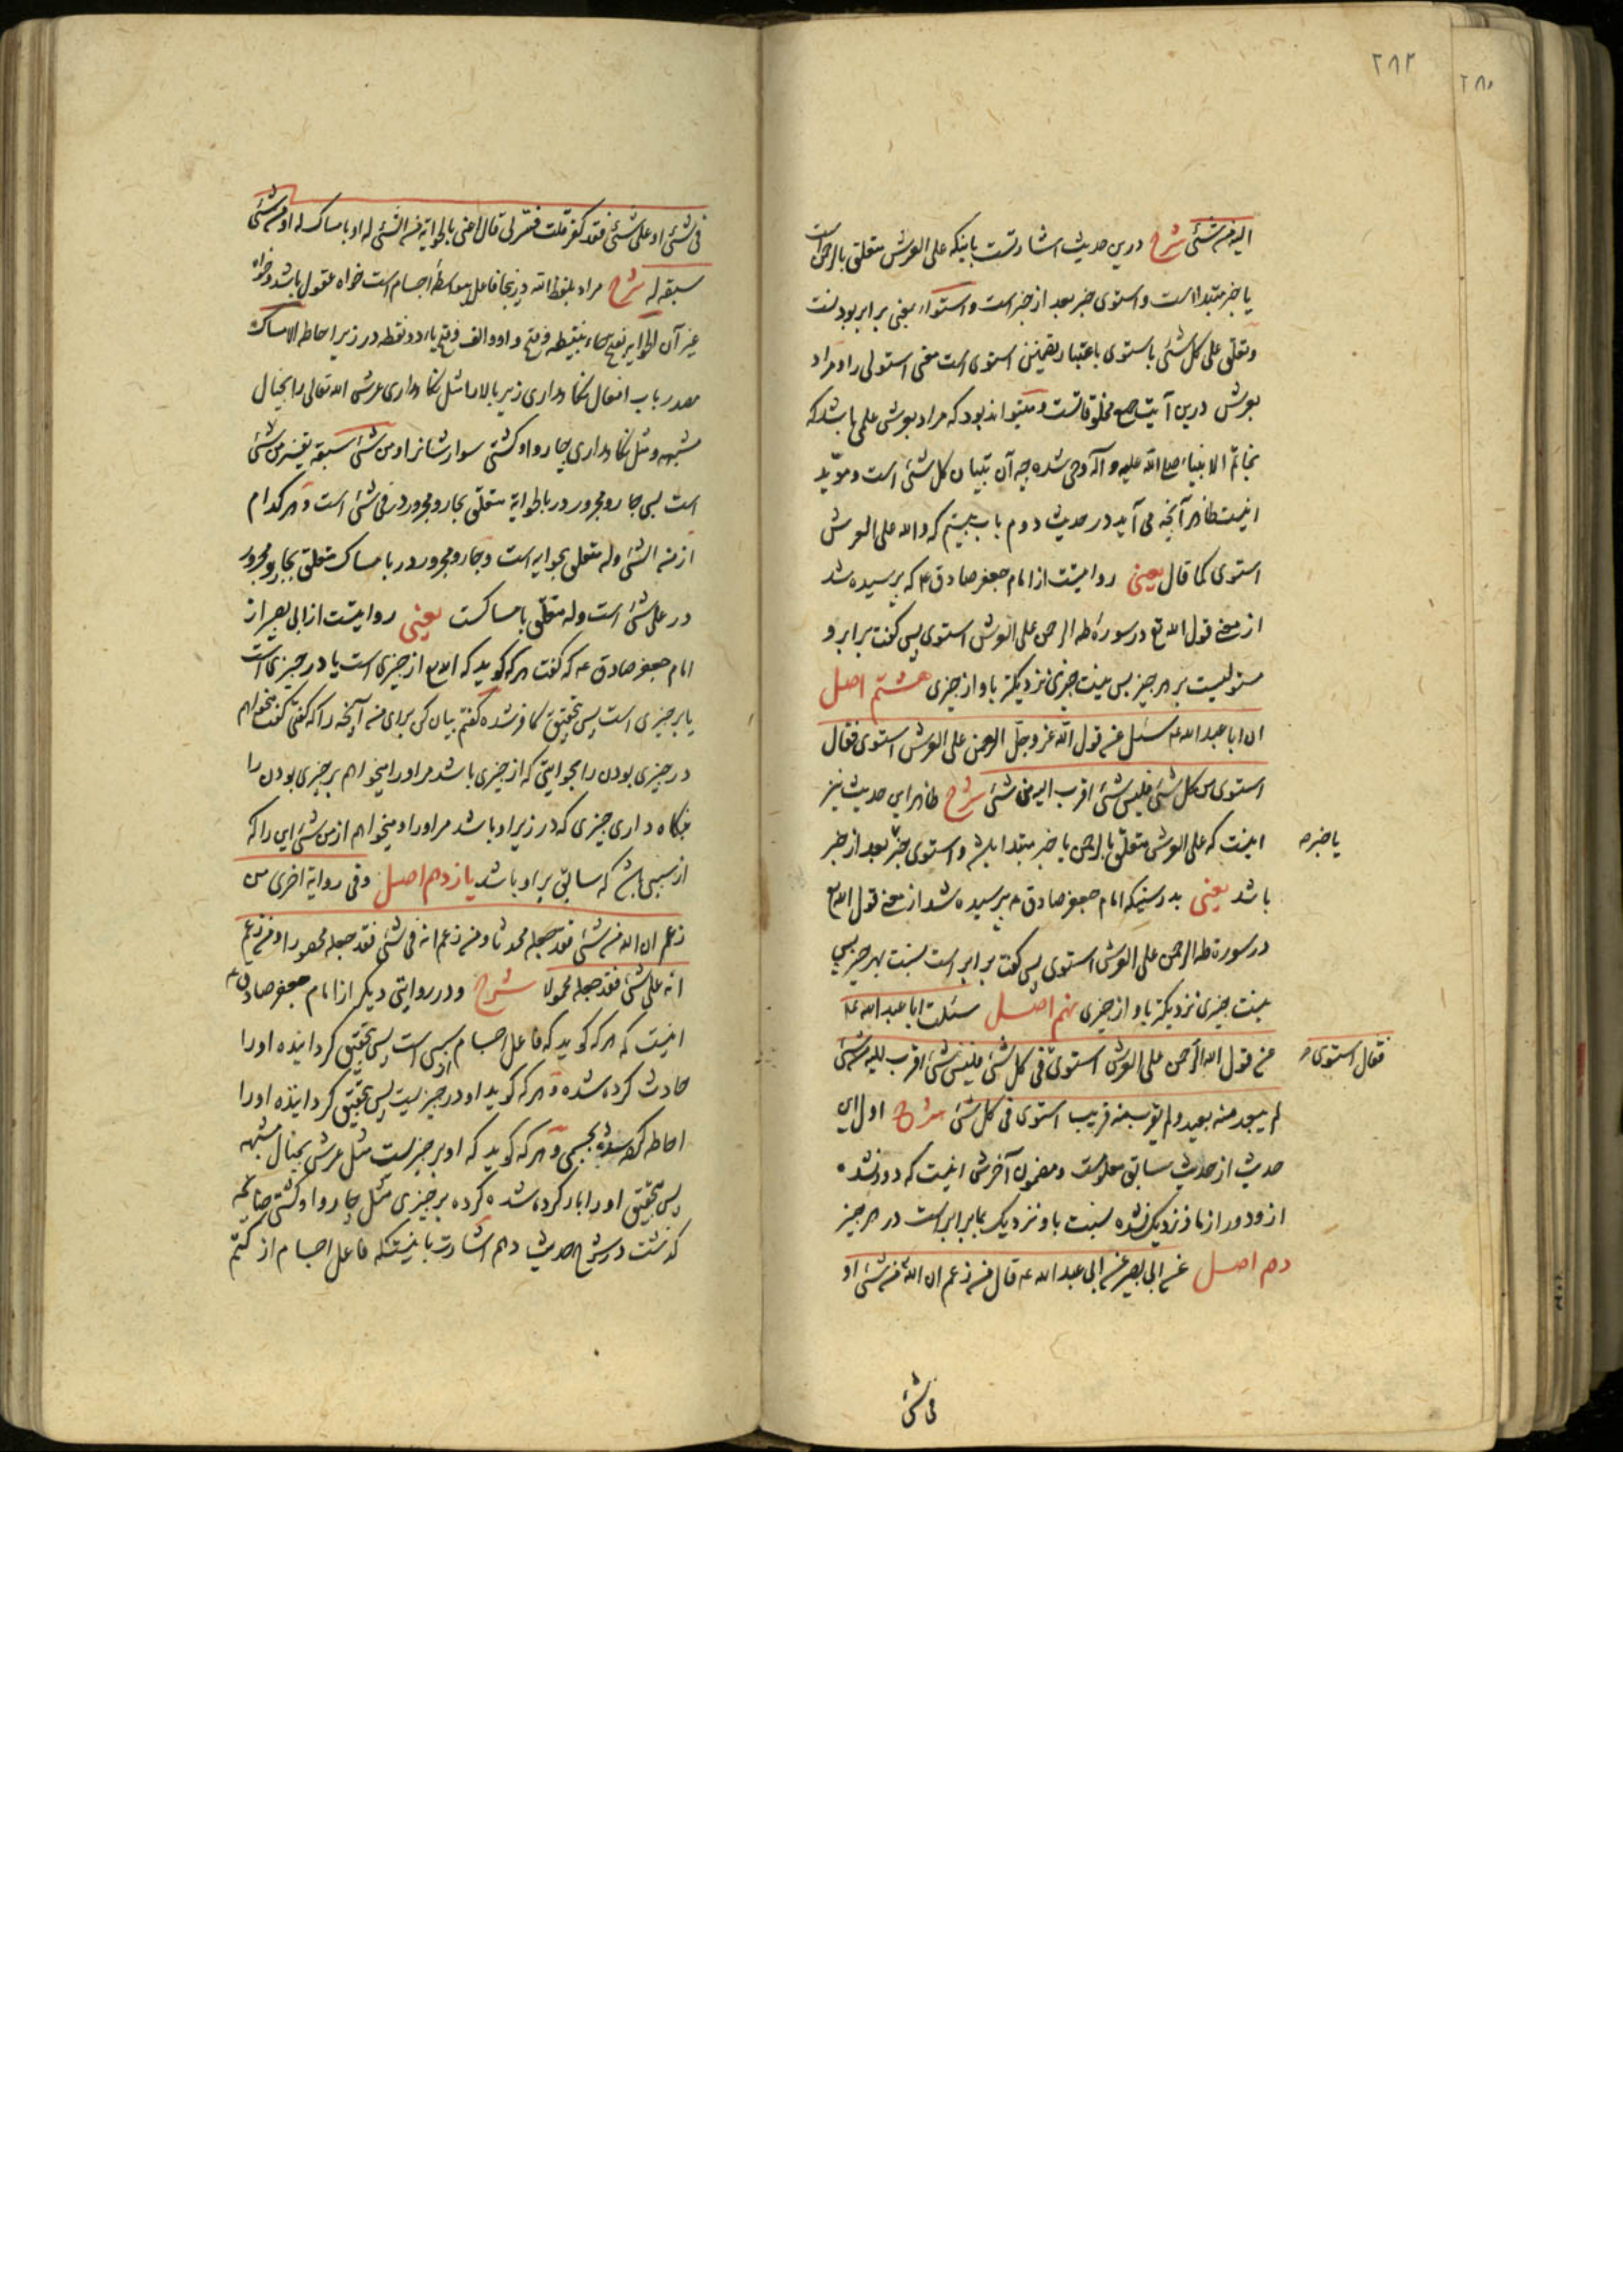 ۲۸۲
۲۸۰
الیه من شیء شرح درین حدیث اشارتست باینکه علی العرش متعلق بالرحمن است
یا خبر مبتداست و استوی خبر بعد از خبر است و استواء بمعنی برابر بودنست
و تعلق علی کل شیء باستوی باعتبار تضمین استوی است معنی استولی را و مراد
بعرش درین آیت جمیع مخلوقاتست و میتواند بود که مراد بعرش علمی باشد که
بخاتم الانبیاء صلی الله علیه و آله وحی شده چه آن تبیان کل شیء است و مؤید
اینست ظاهر آنچه می آید در حدیث دوم باب بیستم که و الله علی العرش
استوی کما قال یعنی روایتست از امام جعفر صادق ع که پرسیده شد
از معنی قول الله تع در سوره طه الرحمن علی العرش استوی پس گفت برابر و
مستولیست بر هر چیز پس نیست چیزی نزدیکتر باو از چیزی هشتم اصل
ان ابا عبد الله ع سئل عن قول الله عز و جل الرحمن علی العرش استوی فقال
استوی من کل شیء فلیس شیء اقرب الیه من شیء شرح ظاهر این حدیث نیز
اینست که علی العرش متعلق بالرحمن یا خبر مبتدا باشد و استوی خبر بعد از خبر
یا خبر ص
باشد یعنی بدرستیکه امام جعفر صادق ع پرسیده شد از معنی قول الله تع
در سورة طه الرحمن علی العرش استوی پس گفت برابر است نسبت بهر چیز پس
نیست چیزی نزدیکتر باو از چیزی نهم اصل سئلت ابا عبد الله ع
عن قول الله الرحمن علی العرش استوی فی کل شیء فلیس شیء اقرب الیه من شیء
فقال استوی ص
لم یبعد منه بعید و لم یقرب منه قریب استوی فی کل شیء شرح اول این
حدیث از حدیث سابق معلومست و مضمون آخرش اینست که دور نشده
ازو دور از ما و نزدیک نشده نسبت باو نزدیک بما برابر است در هر چیز
دهم اصل عن ابی بصیر عن ابی عبد الله ع قال من زعم ان الله من شیء او
فی شیء
فی شیء او علی شیء فقد کفر قلت فسر لی قال اعنی بالحوایة من الشیء له او بامساک له او من شیء
سبقه له شرح مراد بلفظ الله درینجا فاعل بیواسطه اجسام است خواه معقول باشد و خواه
غیر آن الحوایه بفتح حاء بینقطه و فتح واو و الف و فتح یاء دو نقطه در زیر احاطه الامساک
مصدر باب افعال نگاهداری زیر بالا را مثل نگاهداری عرش الله تعالی را بخیال
مشبهه و مثل نگاهداری چاروا و کشتی سوارشانرا و من شیء سبقه تفسیر من شیء
است پس جار و مجرور در بالحوایة متعلق بجار و مجرور در فی شیء است و هر کدام
از من الشیء و له متعلق بحوایه است و جار و مجرور در بامساک متعلق بجار و مجرور
در علی شیء است و له متعلق بامساکست یعنی روایتست از ابی بصیر از
امام جعفر صادق ع که گفت هر که گوید که الله تع از چیزی است یا در چیزی است
یا بر چیزی است پس بتحقیق کافر شده گفتم بیان کن برای من آنچه را که گفتی گفت میخواهم
در چیزی بودن را بحوایتی که از چیزی باشد مر او را و میخواهم بر چیزی بودن را
بنگاه داری چیزی که در زیر او باشد مر او را و میخواهم از من شیء این را که
از سببی باشد که سابق بر او باشد یازدهم اصل و فی روایة اخری من
زعم ان الله من شیء فقد جعله محدثا و من زعم انه فی شیء فقد جعله محصورا و من زعم
انه علی شیء فقد جعله محمولا شرح و در روایتی دیگر از امام جعفر صادق ع
اینست که هر که گوید که فاعل اجسام از سببی است پس بتحقیق گردانیده او را
حادث کرده شده و هر که گوید او در چیزیست پس بتحقیق گردانیده او را
احاطه کرده شده بجسمی و هر که گوید که او بر چیزیست مثل عرش بخیال مشبهه
پس بتحقیق او را بار کرده شده کرده بر چیزی مثل چاروا و کشتی چنانچه
گذشت در شرح حدیث دهم اشارت باینستکه فاعل اجسام از کتم